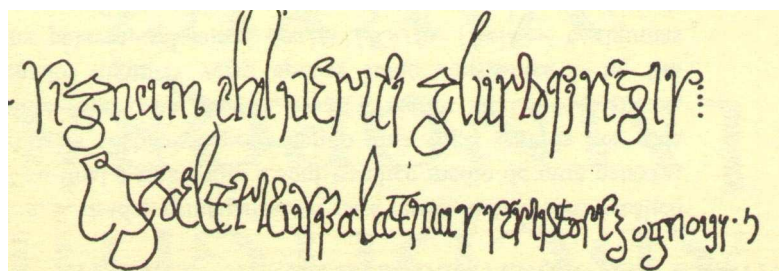 signum chilperici gluriosi regis
ego eltreus palatinus scriptor recognovi